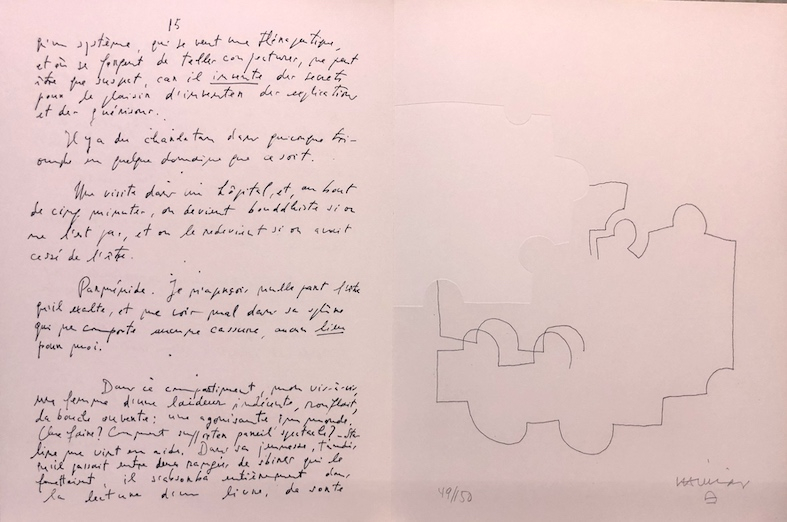 15
qu'un système, qui se veut une thérapeutique,
et où se forgent de telles conjectures, ne peut
être que suspect, car il invente des secrets
pour le plaisir d'inventer des explications
et des guérisons.
Il y a du charlatan dans quiconque tri-
omphe en quelque domaine que ce soit.
Une visite dans un hôpital, et, au bout
de cinq minutes, on devient bouddhiste si on
ne l'est pas, et on le redevient si on avait
cessé de l'être.
Parménide. Je n'aperçois nulle part l'être
qu'il exalte, et me vois mal dans sa sphère
qui ne comporte aucune cassure, aucun lieu
pour moi.
Dans ce compartiment, mon vis-à-vis,
une femme d'une laideur indécente, ronflait,
la bouche ouverte : une agonisante immonde.
Que faire? Comment supporter pareil spectacle? - Sta-
line me vint en aide. Dans sa jeunesse, tandis
qu'il passait entre deux rangées de sbires qui le
fouettaient, il s'absorba entièrement dans
la lecture d'un livre, de sorte
49/150